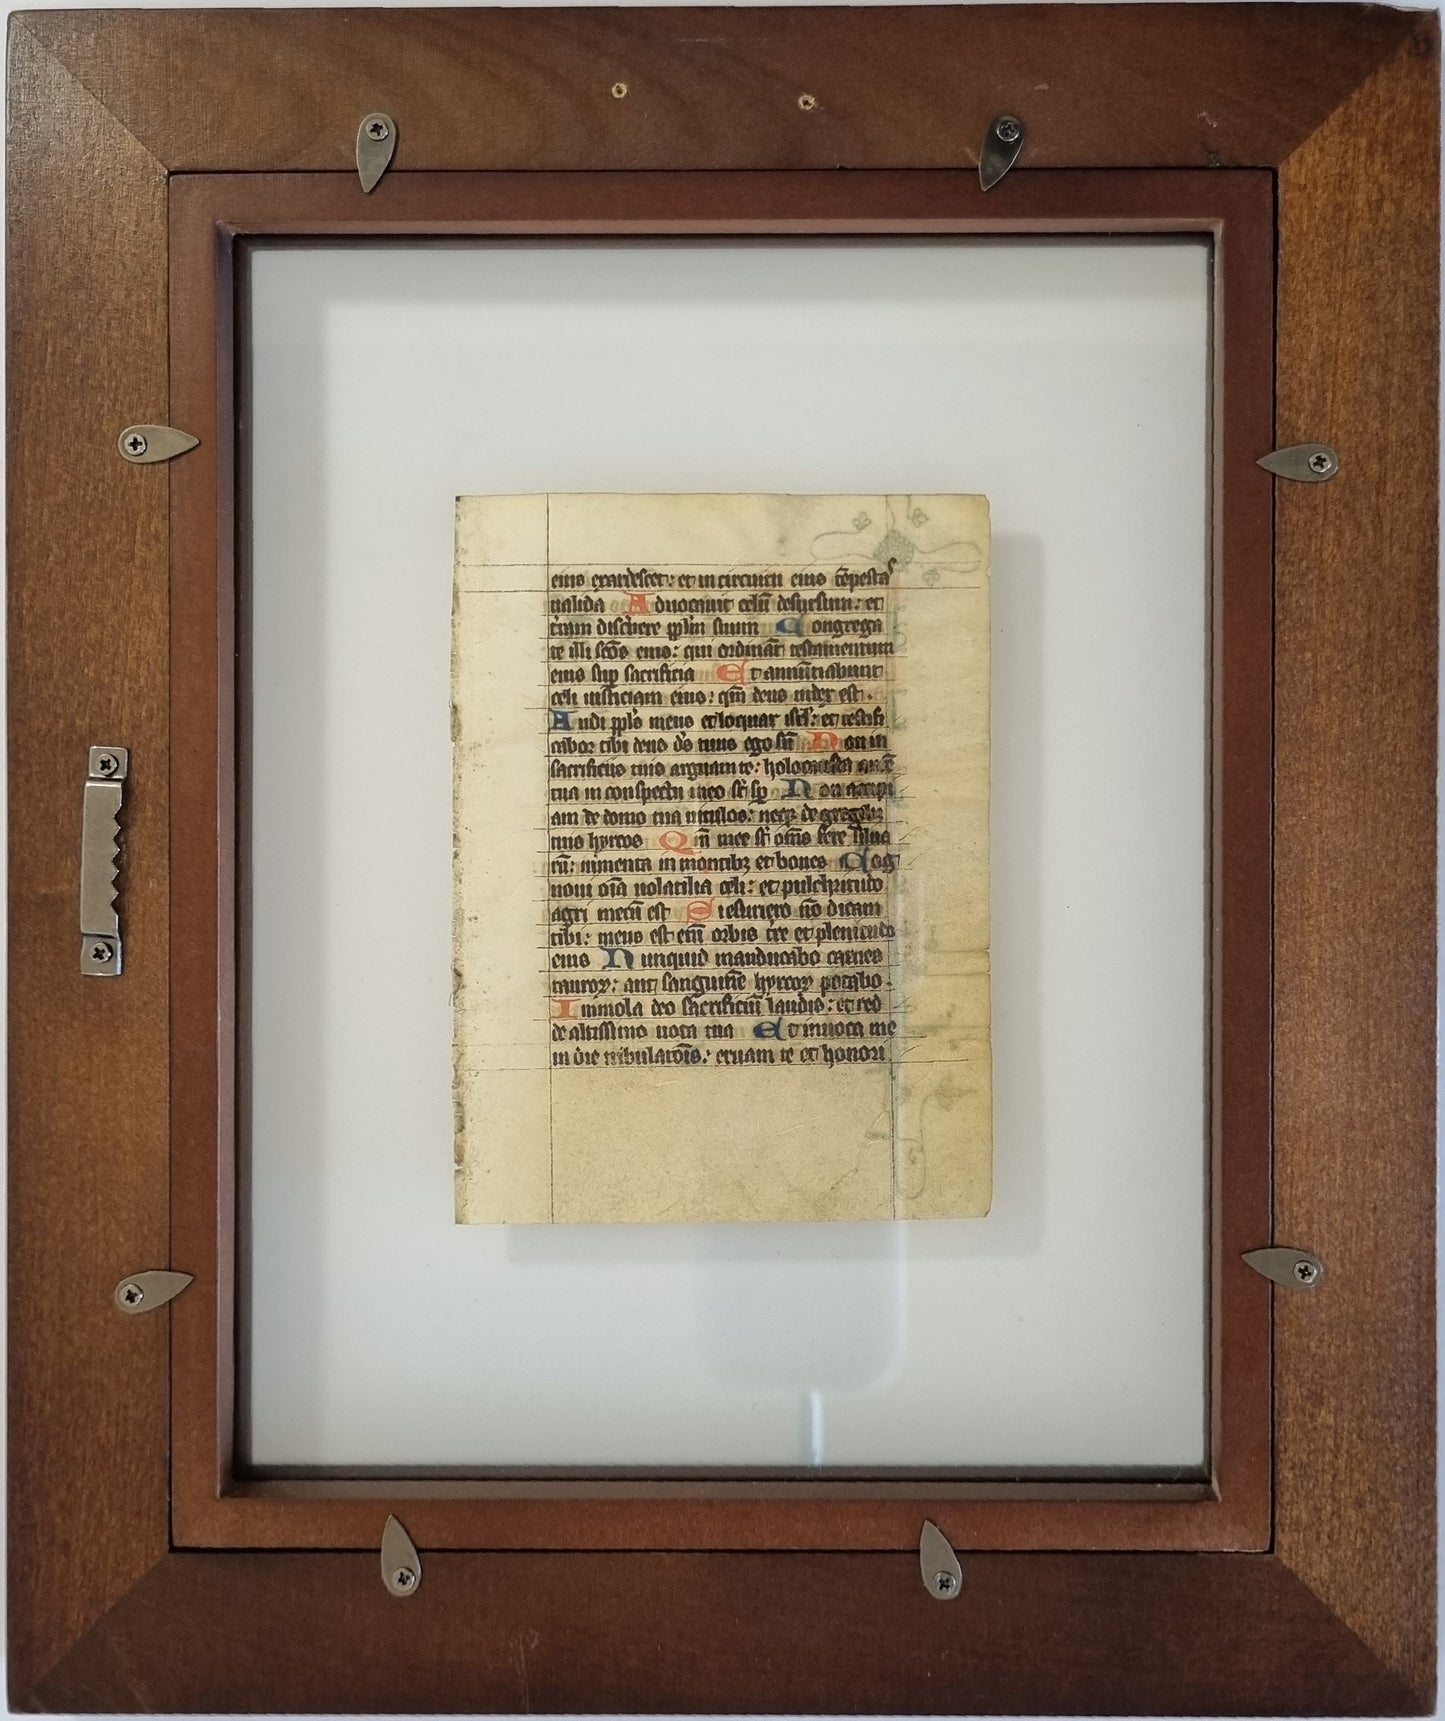 eius exardescet: et in circuitu eius tēpestas
ualida Aduocauit celū desursum: et
t̄ram discēnere pplm̄ suum Congrega
te illi sc̄os eius: qui ordināt testamentum
eius sup sacrificia Et annūtiabunt
celi iusticiam eius: qm̄ deus iudex est.
Audi ppl̄s meus et loquar isrl̄: et testifi
cabor tibi deus ds̄ tuus ego sū Non in
sacrificiis tuis arguam te: holocausta autē
tua in conspectu meo st̄ sp̄ Non accipi
am de domo tua uitulos: neqꝫ de gregibꝫ
tuis hyrcos Qm̄ mee st̄ om̄s fere silua
rū: iumenta in montibꝫ et boues Cog
noui oīa uolatilia celi: et pulchritudo
agri mecū est Si esuriero nō dicam
tibi: meus est eni̅ orbis tr̄e et plenitudo
eius Nunquid manducabo carnes
tauroꝝ: aut sanguinē hyrcoꝝ potabo.
Immola deo sacrificiū laudis: et red
de altissimo uota tua Et inuoca me
in die tribulatōis: eruam te et honori